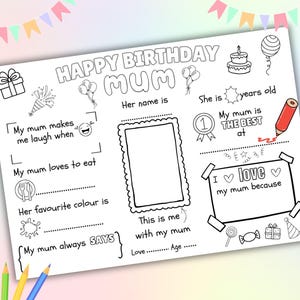 HAPPY BIRTHDAY
MUM
Her name is
She is years old
My mum makes
me laugh when
My mum is
THE BEST
at
1
My mum loves to eat
I love
my mum because
Her favourite colour is
This is me
with my mum
My mum always SAYS
Love Age